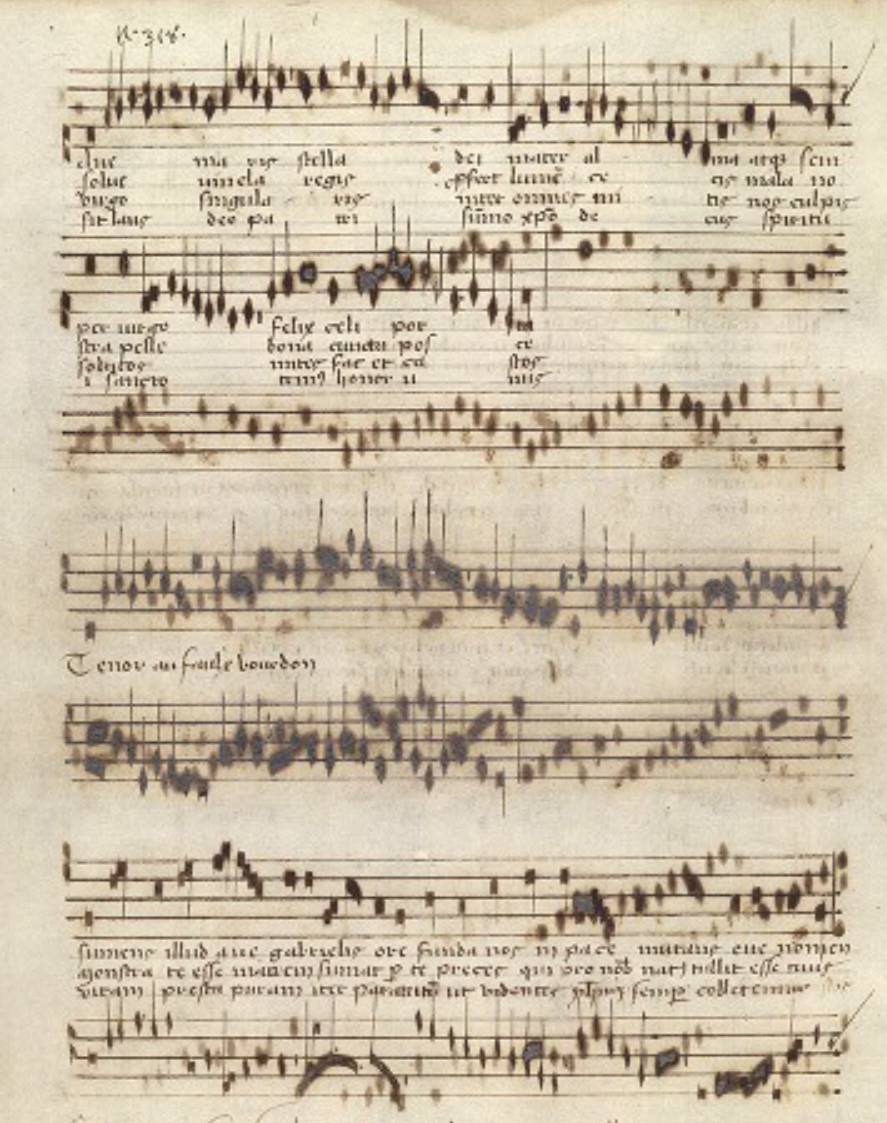 Ave maris stella dei mater al ma atq sem
solve vincla regis pfert lumē ce cis mala no
virgo singula ris inter omnes mi tis nos culpis
sit laus deo pa tri sūmo xpō de cus spiritu
per virgo felix celi por ta
stra pelle bona cuncta pos ce
solutos mites fac et ca stos
i sancto honor u nus
Tenor au faulx bourdon
sumens illud ave gabrielis ore funda nos in pace mutans eve nomen
monstra te esse matrem sumat p te preces qui pro nob tulit esse tuus
vitam presta puram iter ut videntes semp colletemur